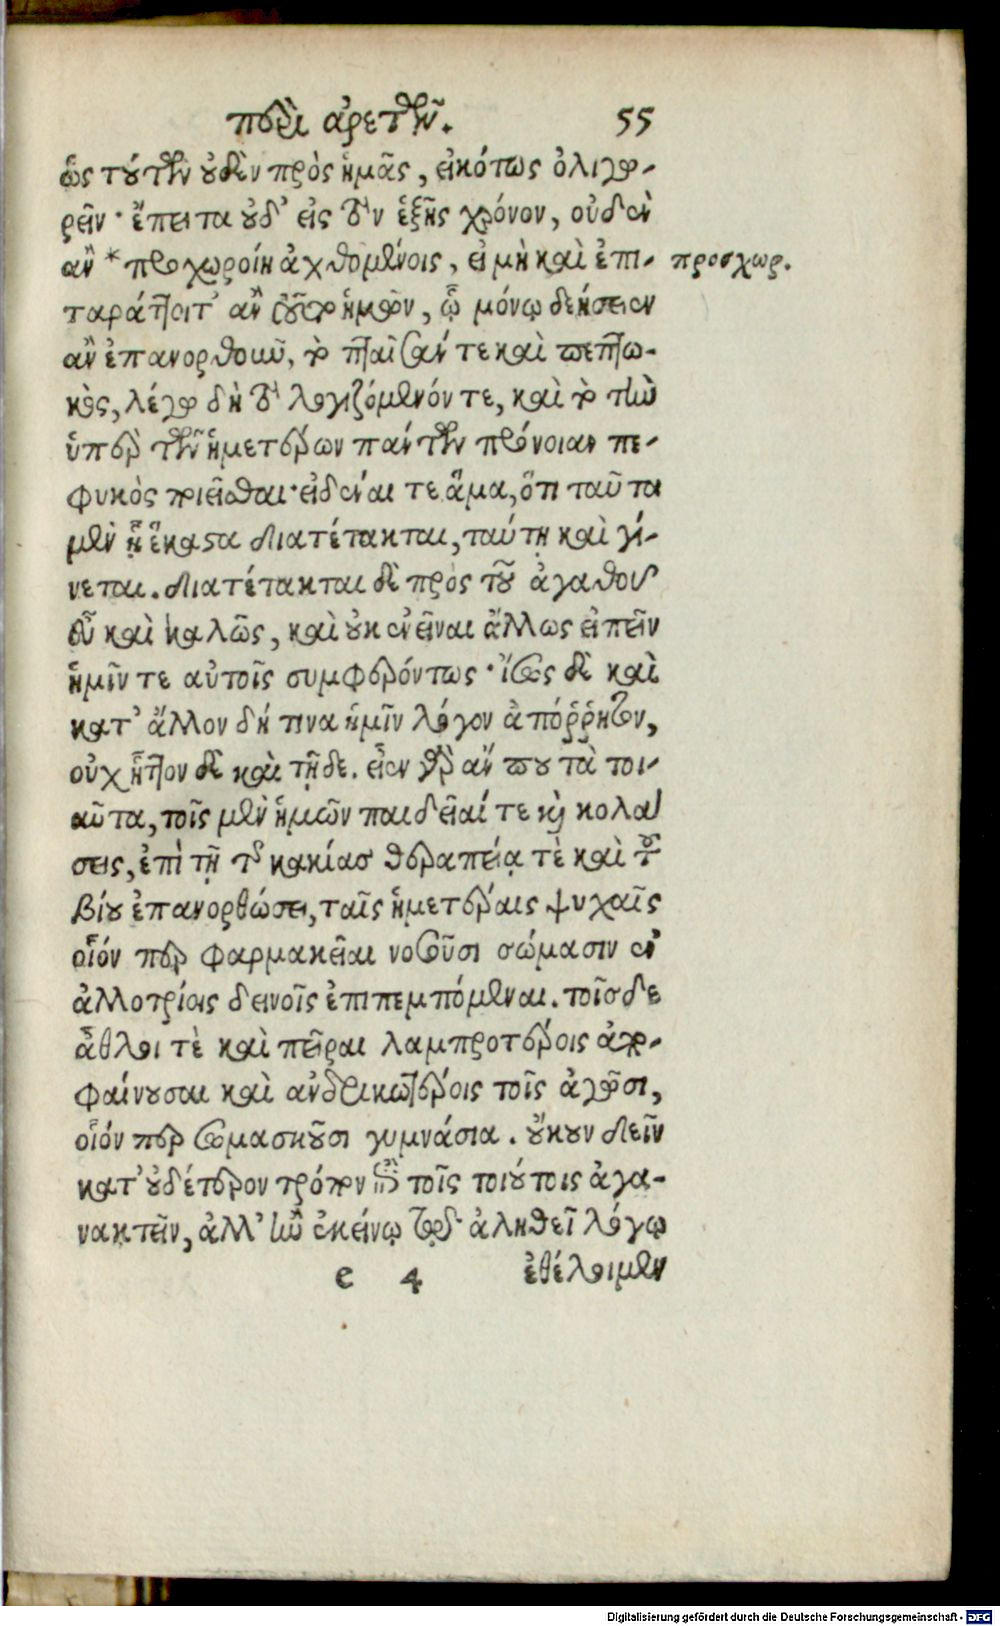 περὶ ἀρετῶν. 55
ὡς τούτων οὐδὲν πρὸς ἡμᾶς, εἰκότως ὀλιγω-
ρεῖν· ἔπειτα οὐδ' εἰς τὸν ἑξῆς χρόνον, οὐδὲν
ἂν *προχωροίη ἀχθομένοις, εἰ μὴ καὶ ἐπι- προσχωρ.
ταράττοιτ' ἂν τοῦτο ἡμῶν, ᾧ μόνῳ δεήσειεν
ἂν ἐπανορθοῦν, τὸ πταῖσάν τε καὶ πεπτω-
κὸς, λέγω δὴ τὸ λογιζόμενόν τε, καὶ τὸ τὴν
ὑπὲρ τῶν ἡμετέρων πάντων πρόνοιαν πε-
φυκὸς ποιεῖσθαι· εἰδέναι τε ἅμα, ὅτι ταῦτα
μὲν ᾗ ἕκαστα διατέτακται, ταύτῃ καὶ γί-
νεται. διατέτακται δὲ πρὸς τοῦ ἀγαθοῦ
εὖ καὶ καλῶς, καὶ οὐκ ἐνεῖναι ἄλλως εἰπεῖν
ἡμῖν τε αὐτοῖς συμφερόντως· ἴσως δὲ καὶ
κατ' ἄλλον δή τινα ἡμῖν λόγον ἀπόῤῥητον,
οὐχ ἧττον δὲ καὶ τῇδε. εἶεν γὰρ ἄν που τὰ τοι-
αῦτα, τοῖς μὲν ἡμῶν παιδεῖαί τε καὶ κολά
σεις, ἐπὶ τῇ τῆς κακίας θεραπείᾳ τὲ καὶ τοῦ
βίου ἐπανορθώσει, ταῖς ἡμετέραις ψυχαῖς
οἷόν περ φαρμακεῖαι νοσοῦσι σώμασιν ἐν
ἀλλοτρίοις δεινοῖς ἐπιπεμπόμεναι. τοῖσδε
ἆθλοι τὲ καὶ πεῖραι λαμπροτέροις ἀπο-
φαίνουσαι καὶ ἀνδρικωτέροις τοῖς ἀγῶσι,
οἷόν περ σωμασκοῦσι γυμνάσια. οὔκουν δεῖν
κατ' οὐδέτερον τρόπον ἐπὶ τοῖς τοιούτοις ἀγα-
νακτεῖν, ἀλλ' ἢν ἐκείνῳ τῷδ' ἀληθεῖ λόγῳ
e 4 ἐθέλοιμεν
Digitalisierung gefördert durch die Deutsche Forschungsgemeinschaft - DFG